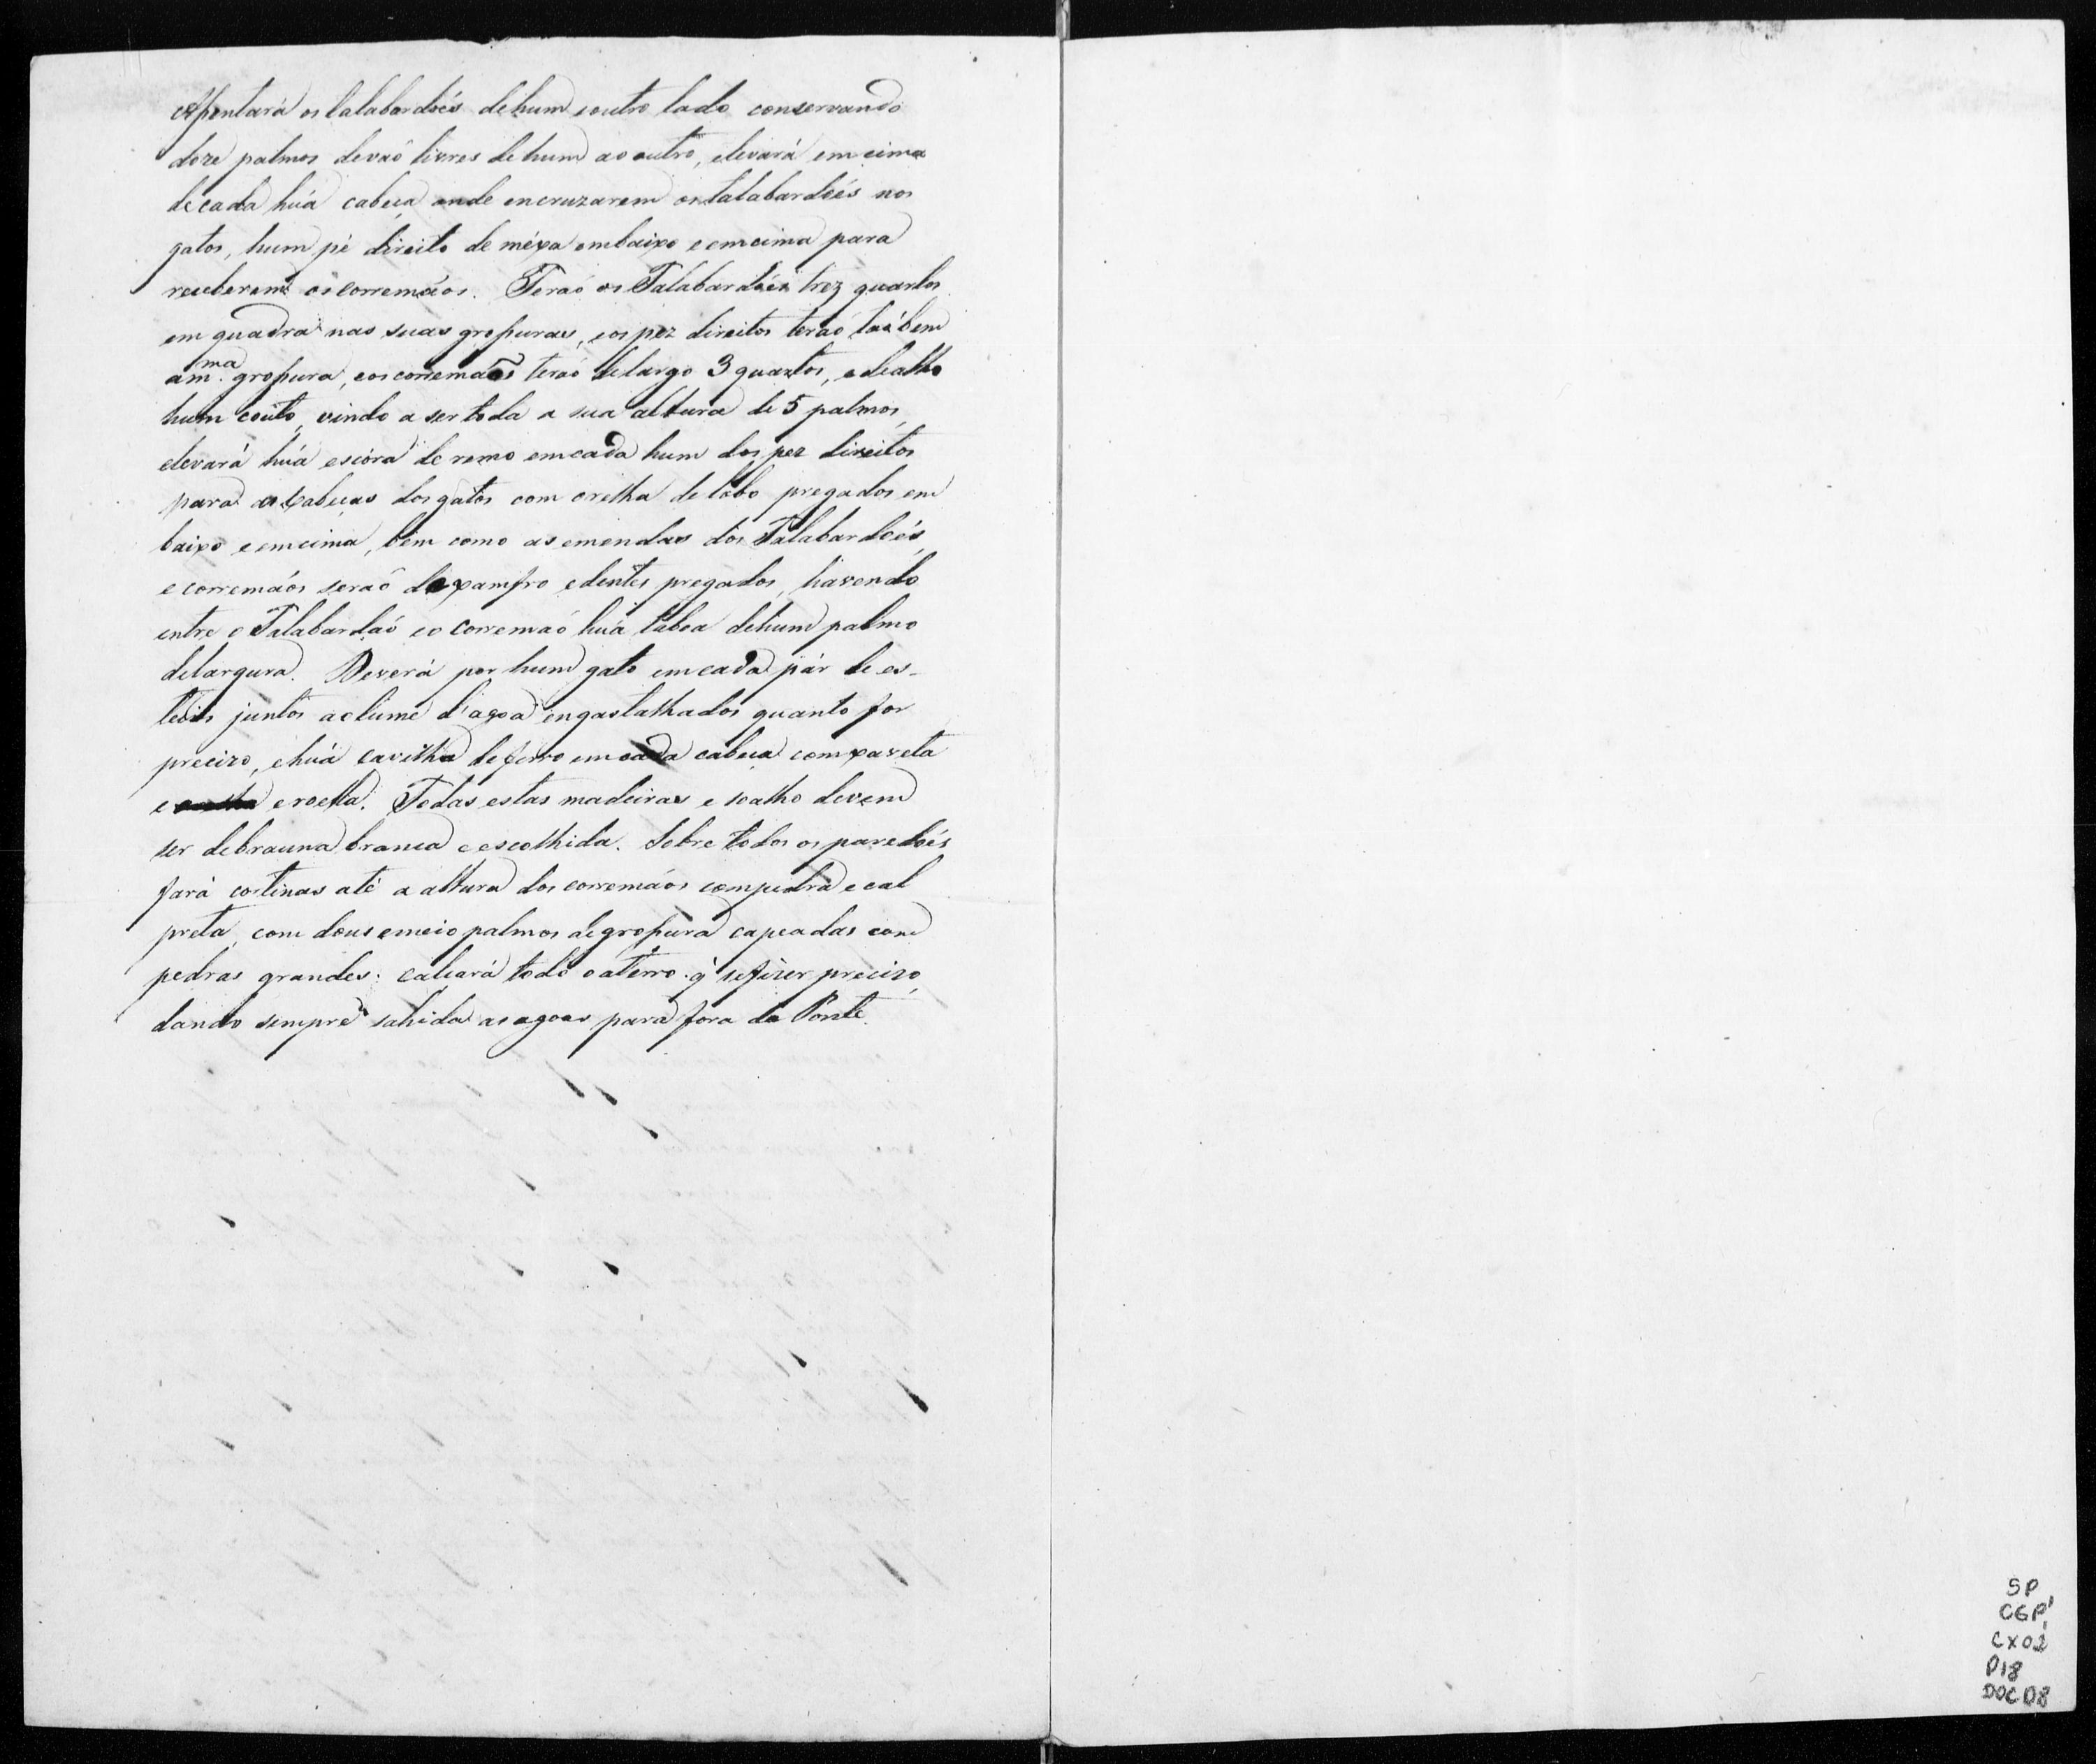 Apontará os talabardoẽs de hum e outro lado conservando
doze palmos de vaõ livres de hum ao outro, e levará em cima
de cada huã cabeça onde encruzarem os talabardoẽs nos
gatos, hum pé direito de méxa embaixo e emcima para
receberem os corremaõs. Teraõ os Talabardoẽs trez quartos
em quadra nas suas grossuras, e os pez direitos teraõ taõbem
a m.ma grossura, e os corremaõs teraõ de largo 3 quartos, e de alto
hum couto, vindo a ser toda a sua altura de 5 palmos,
e levará huã escóra de remo em cada hum dos pez direitos
para as cabeças dos gatos com orelha de lobo pregados em
baixo e emcima, bem como as emendas dos Talabardoẽs,
e corremaõs seraõ de xamfro e dentes pregados, havendo
entre o Talabardaõ e o corremaõ huã taboa de hum palmo
de largura. Deverá por hum gato em cada pár de es-
teios juntos ao lume d'agoa engastalhados quanto for
precizo, e huã cavilha de ferro em cada cabeça com xaveta
e roella. Todas estas madeiras e soalho devem
ser de brauna branca e escolhida. Sobre todos os paredoẽs
fará cortinas até a altura dos corremaõs com pedra e cal
preta, com dous e meio palmos de grossura capeadas com
pedras grandes: calçará todo o aterro q' se fizer precizo,
dando sempre sahida as agoas para fora da Ponte.
SP
CGP1
CX02
P18
DOC08